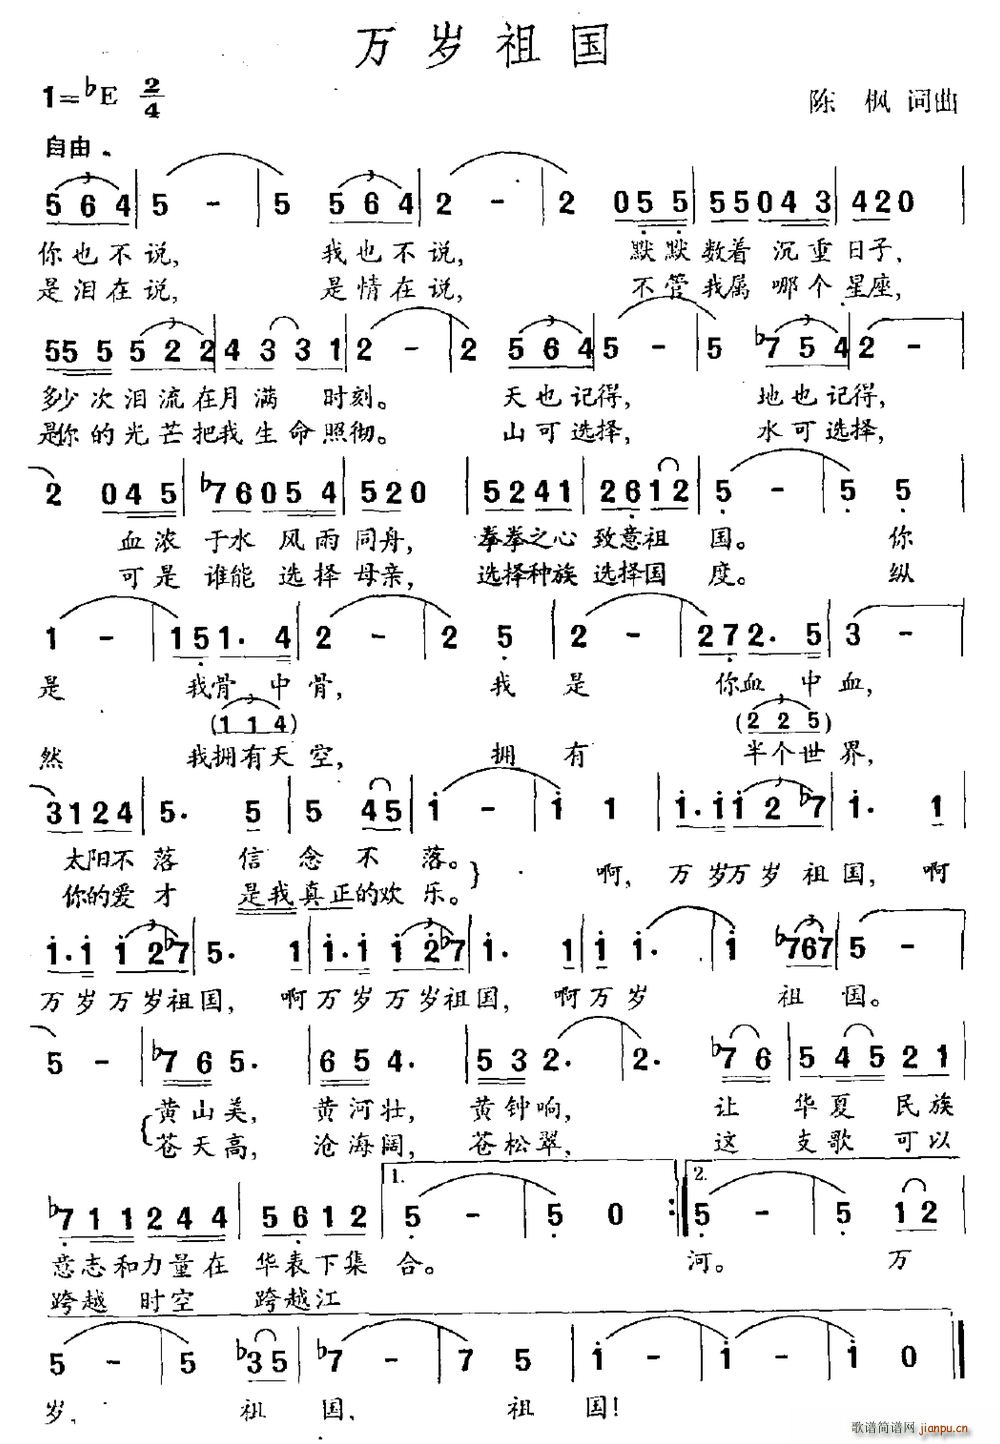 万岁祖国
1=♭E 2/4
陈 枫 词曲
自由
5 6 4 | 5 - | 5 5 6 4 | 2 - | 2 0 5 5 | 5 5 0 4 3 | 4 2 0 |
你也不说, 我也不说, 默默数着 沉重日子,
是泪在说, 是情在说, 不管我属 哪个星座,
5 5 5 5 2 2 | 4 3 3 1 | 2 - | 2 5 6 4 | 5 - | 5 ♭7 5 4 | 2 -
多少次泪流在月满 时刻。 天也记得, 地也记得,
是你的光芒把我生命照彻。 山可选择, 水可选择,
2 0 4 5 | ♭7 6 0 5 4 | 5 2 0 | 5 2 4 1 | 2 6 1 2 | 5 - | 5 5
血浓于水 风雨同舟, 拳拳之心 致意祖国。 你
可是谁能 选择母亲, 选择种族 选择国度。 纵
1 - | 1 5 1. 4 | 2 - | 2 5 | 2 - | 2 7 2. 5 | 3 -
是 我骨中骨, 我是 你血中血,
(1 1 4) (2 2 5)
然 我拥有天空, 拥有 半个世界,
3 1 2 4 | 5. 5 | 5 4 5 | i - | i 1 | i. i i 2 ♭7 | i. 1
太阳不落 信念不落。 啊, 万岁万岁祖国, 啊
你的爱才 是我真正的欢乐。
i. i i 2 ♭7 | 5. 1 | i. i i 2 ♭7 | i. 1 | i i | i ♭7 6 7 | 5 -
万岁万岁祖国, 啊万岁万岁祖国, 啊万岁 祖国。
5 - | ♭7 6 5. | 6 5 4. | 5 3 2. | 2. ♭7 6 | 5 4 5 2 1
黄山美, 黄河壮, 黄钟响, 让华夏民族
苍天高, 沧海阔, 苍松翠, 这支歌可以
1. 2.
♭7 1 1 2 4 4 | 5 6 1 2 | 5 - | 5 0 :| 5 - | 5 1 2
意志和力量在 华表下集合。 河。 万
跨越时空 跨越江
5 - | 5 ♭3 5 | ♭7 - | 7 5 | i - | i - | i 0 ‖
岁, 祖国, 祖国!
歌谱简谱网 jianpu.cn